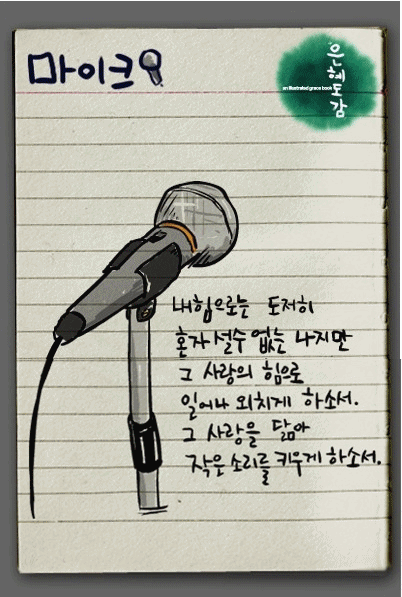 마이크
은혜도감
an illustrated grace book
내힘으로는 도저히
혼자 설수 없는 나지만
그 사랑의 힘으로
일어나 외치게 하소서.
그 사랑을 닮아
작은 소리를 키우게 하소서.